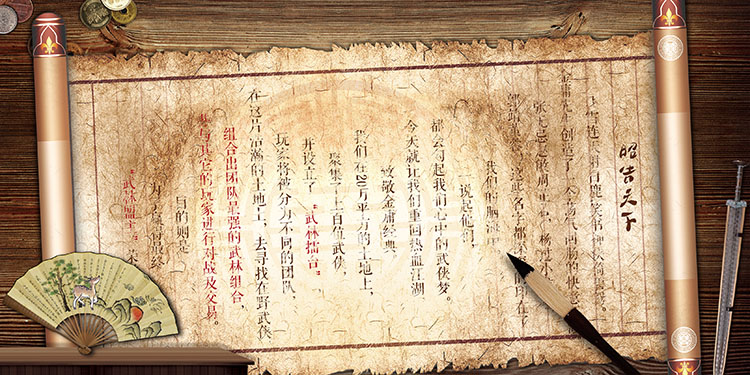 昭告天下
飞雪连天射白鹿，笑书神侠倚碧鸳。
金庸先生创造了一个
张无忌、令狐冲、韦小宝、杨过、小
郭靖、黄蓉，这些名字都深深的印在了
我们的脑海中
一说起他们，
都会勾起我们心中的武侠梦。
今天就让我们重回热血江湖，
致敬金庸经典
我们在20万平方的土地上，
聚集了上百值武侠，
并设立了“武林擂台”。
玩家将被分为不同的团队，
在这片浩瀚的土地上，去寻找在野武侠
组合出团队最强的武林组合，
并与其它的玩家进行对战及交易。
目的则是
“武林盟主”